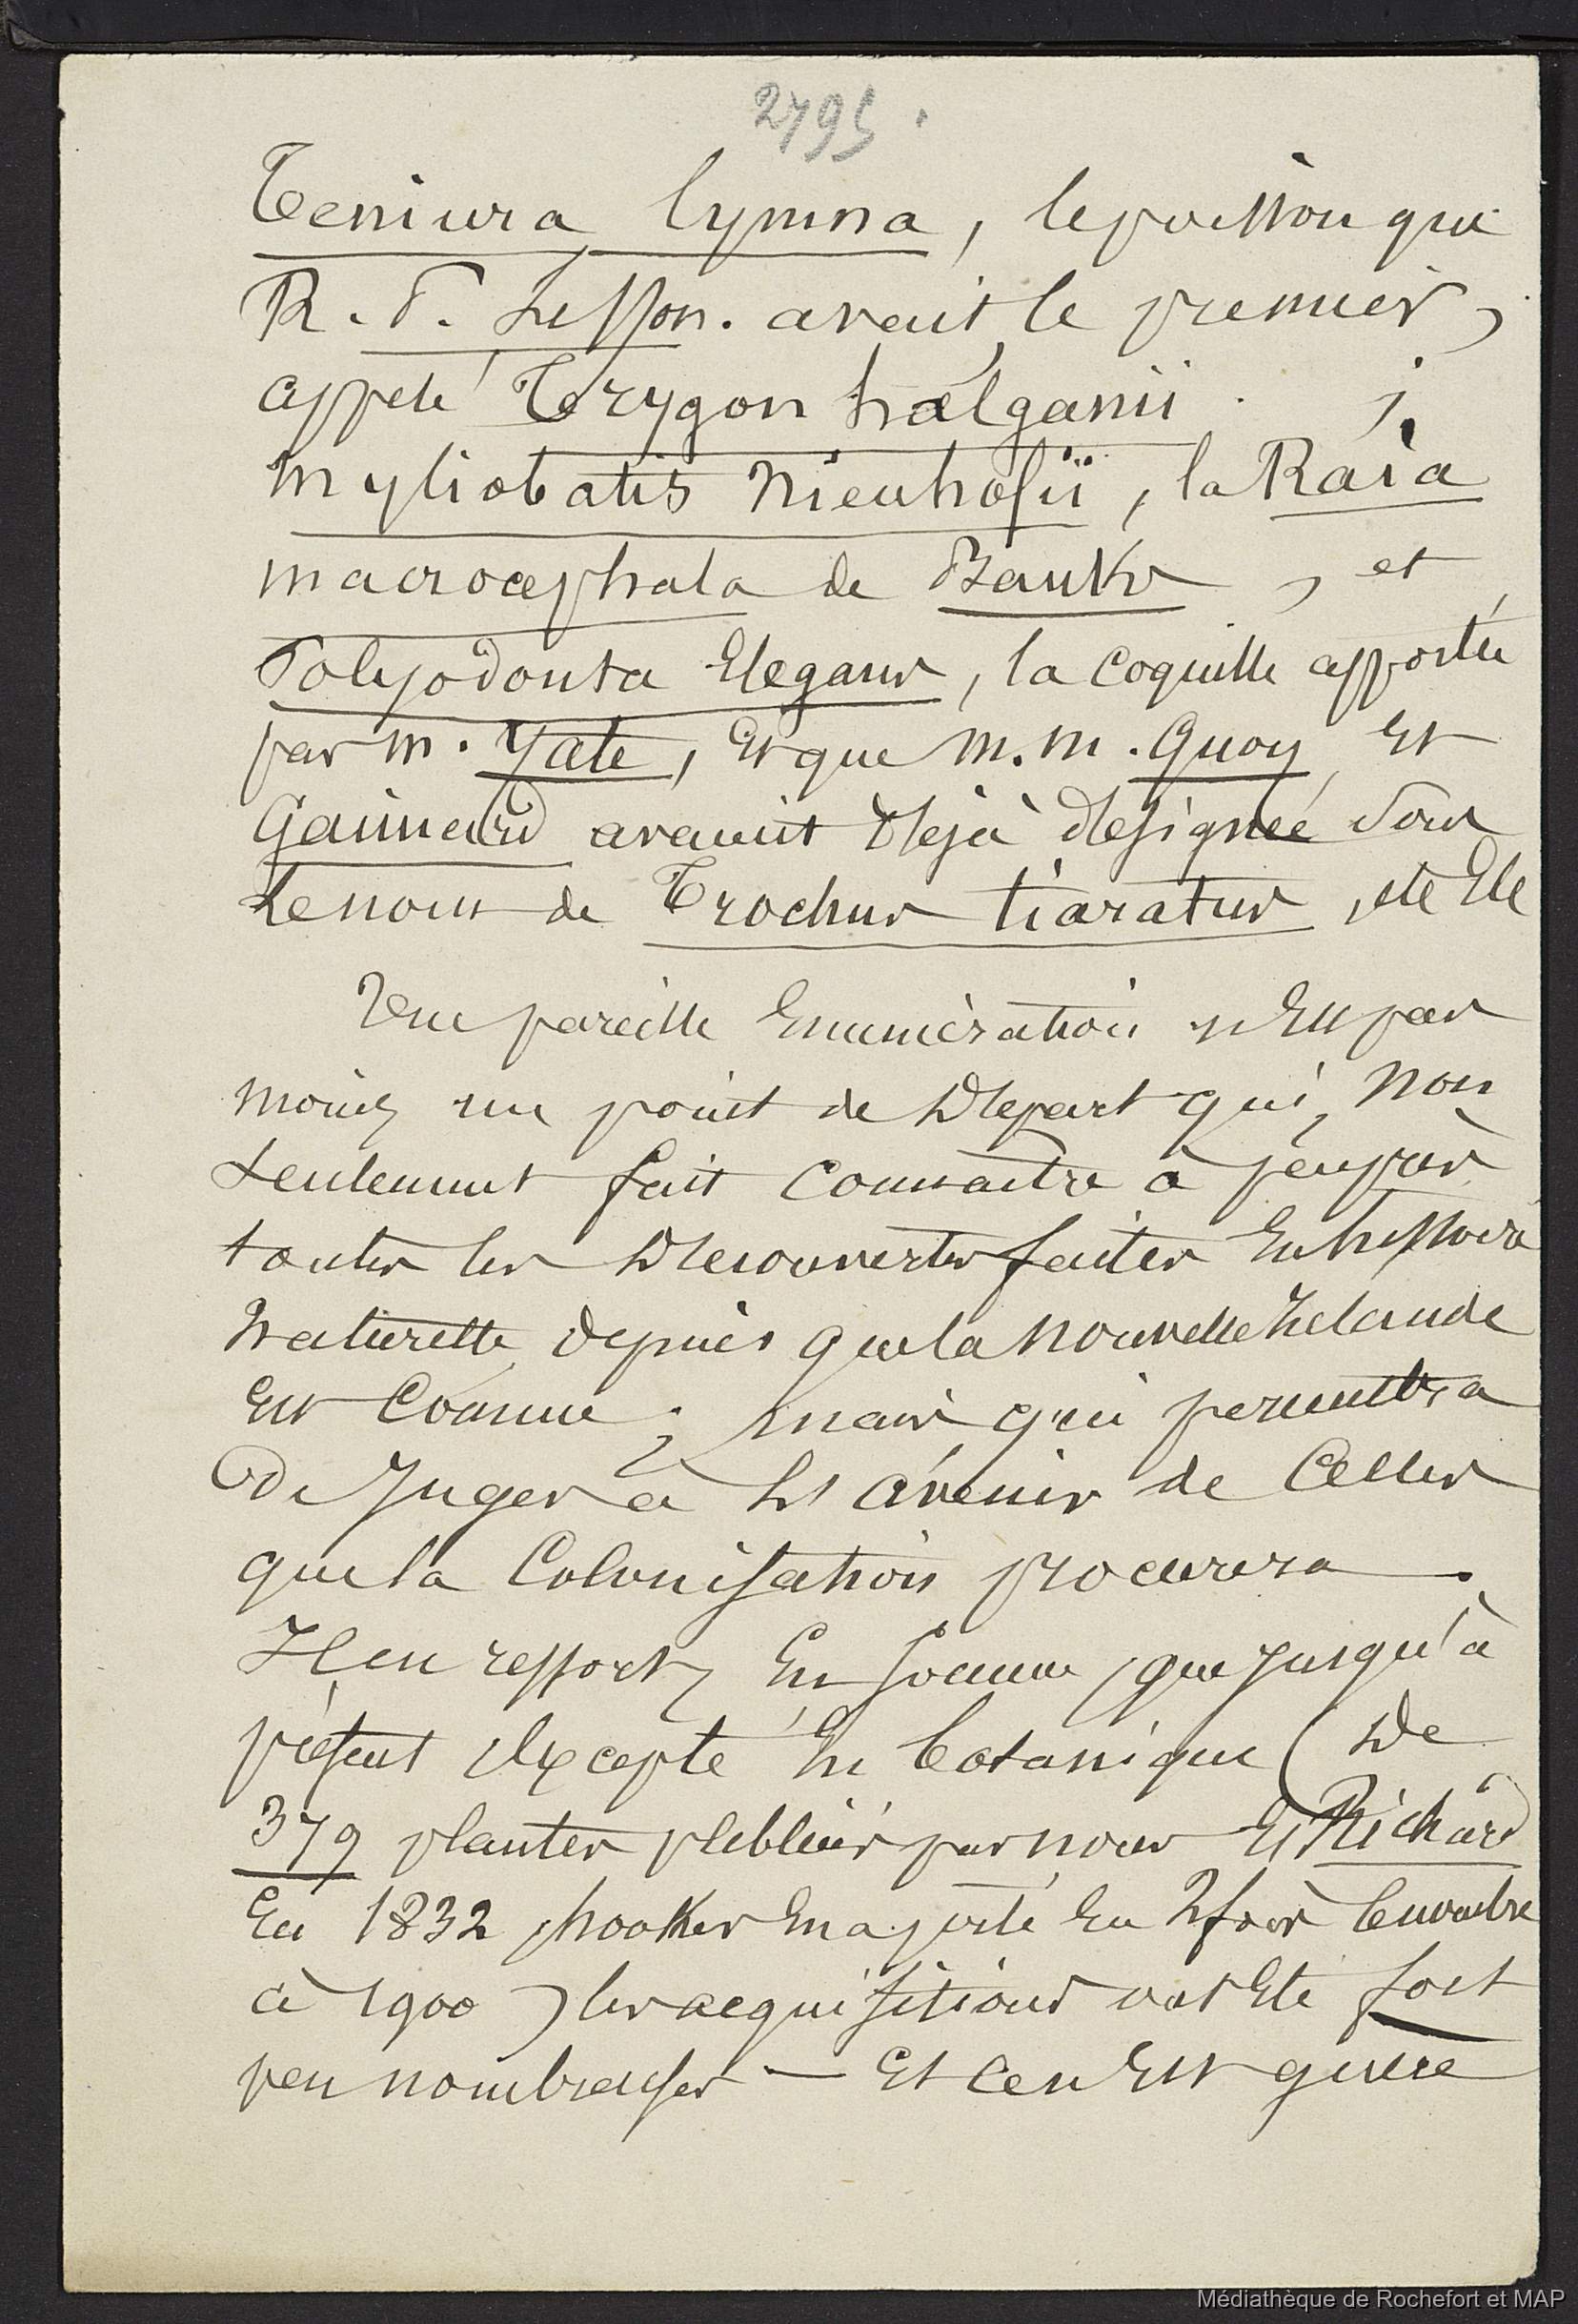 2795.
Teniura lymna, le poisson que
R. P. Lesson. avait, le premier,
appelé Trygon halganii. ;
myliobatis Nieuhofii, la Raia
macrocephala de Banks, et
Polyodonta Elegans, la coquille apportée
par M. Yate, Et que M. M. Quoy Et
Gaimard avaient déjà désignée sous
le nom de Trochus tiaratus, etc Etc
Une pareille Enumération n'Est pas
moins un point de départ qui, non
seulement fait connaitre à peu près
toutes les découvertes faites En histoire
naturelle depuis que la nouvelle Zelande
Est Connue; mais qui permettra
de Juger à L'avenir de Celles
que la Colonisation procurera.
Il en ressort, En somme, que jusqu'à
présent, Excepté En botanique (De
379 plantes publiées par nous Et Richard
En 1832, hooker En a porté En 2 fois le nombre
à 1900) les acquisitions ont Eté fort
peu nombreuses — Et Ce n'Est guère
Médiathèque de Rochefort et MAP